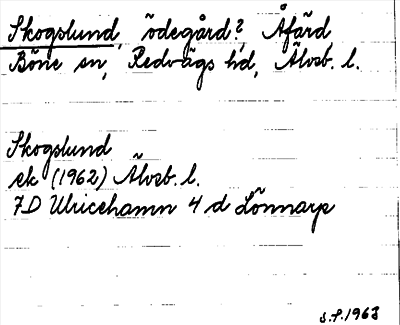 Skogslund, ödegård?, Åfärd,
Böne sn, Redvägs hd, Älvsb. l.
Skogslund
ek (1962) Älvsb. l.
7D Ulricehamn 4 d Lönnarp
S.P. 1963